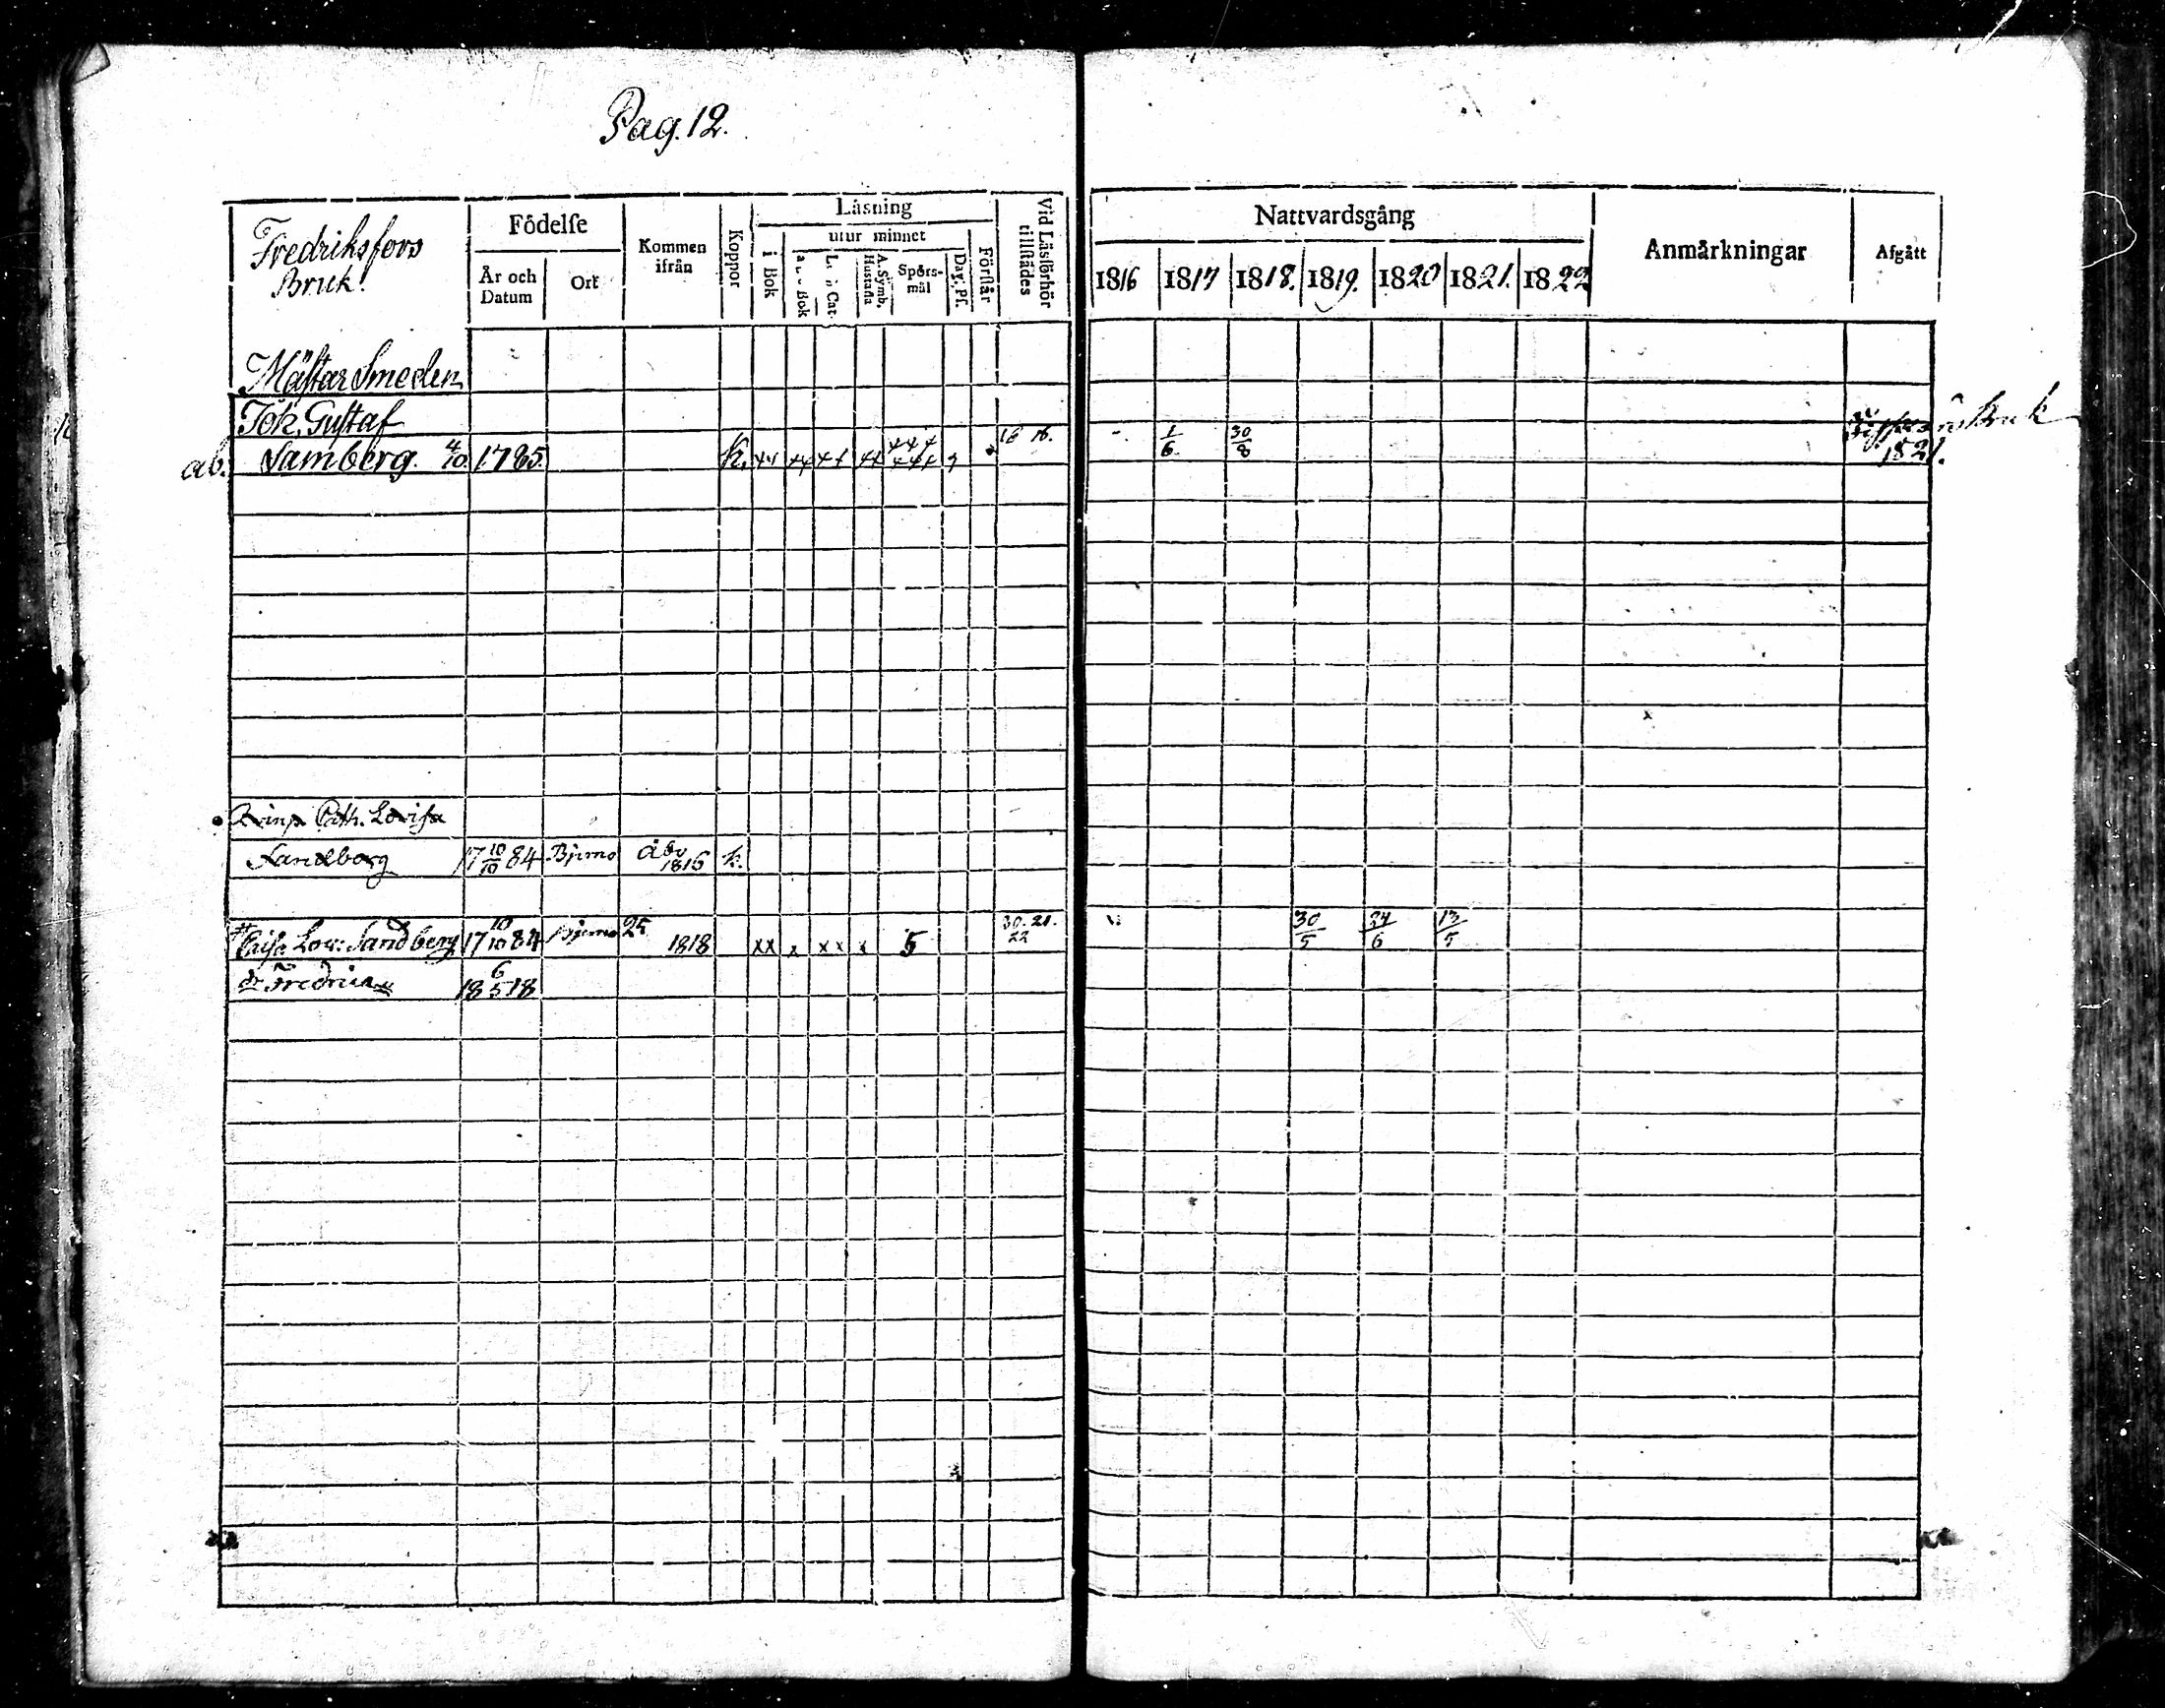 Pag. 12.
Fredriksfors
Bruk.
Födelse
År och Datum
Ort
Kommen ifrån
Koppor
Läsning
i Bok
utur minnet
a b c Bok
L: s Cat.
A. Symb. Hustafla
Spörsmål
Dav. Ps.
Förstår
Vid Läsförhör tillstädes
Nattvardsgång
1816 1817 1818. 1819. 1820 1821. 1822
Anmärkningar
Afgått
Mästar Smeden
Joh. Gustaf
ab. Samberg. 4/10 1785. K. 16 16. 1/6 30/8 Bruk 1821.
Cath. Lovisa
Sandberg 17 10/10 84 Bjerno Åbo 1816 k.
Caisa Low: Sandberg 17 10/10 84 Bjerno 25 1818 xx x xx x 5 30. 21. 22 30/5 24/6 13/5
dr Fredrica 18 6/5 18